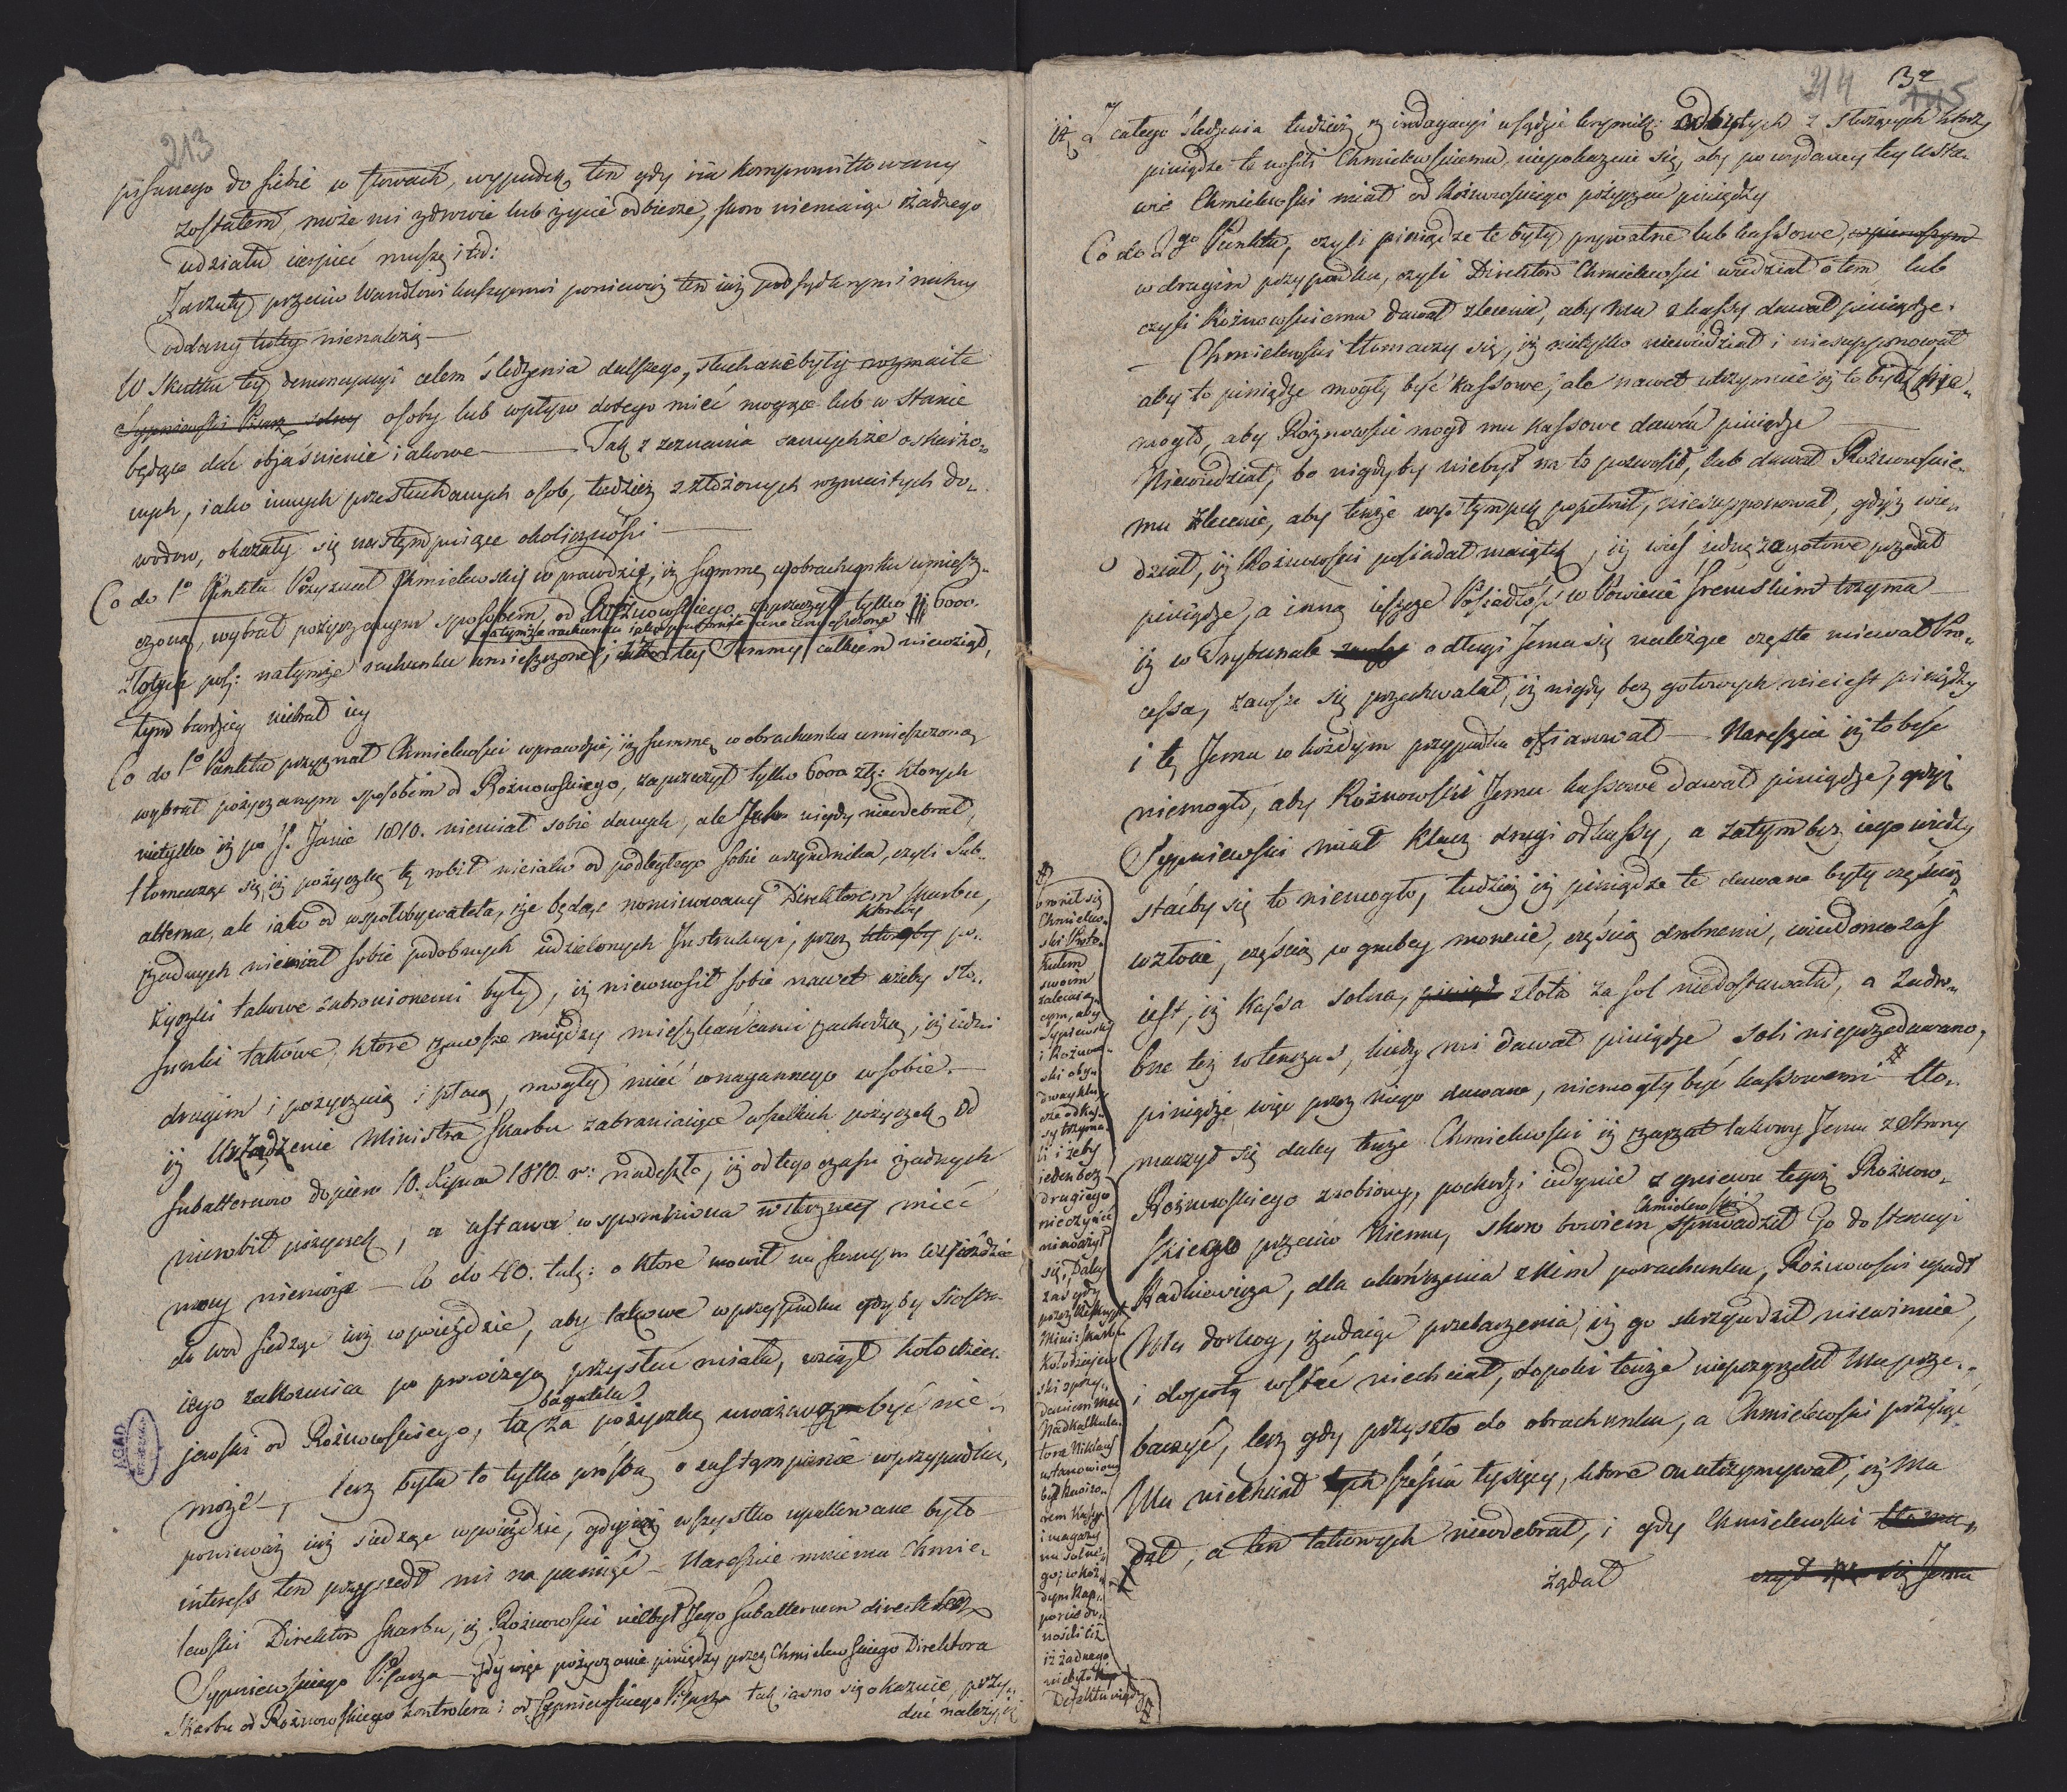 213
pisanego do siebie w słowach, wypadek ten gdy iia kompromittowany
zostałem, może mi zdrowie lub życie odbierze, skoro niemaiąc żadnego
udziału cierpieć muszę i t:d:
Zarzuty przeciw Wandlowi kassyerowi ponieważ ten iuż pod sąd kryminalny
oddany tutey nienależą —
W skutku tey denuncyacyi celem śledzenia dalszego, słuchane były rozmaite
Sypniewski Pisarz solny osoby lub wpływ do tego mieć mogące lub w stanie
będące dać objaśnienie iakowe — Tak z zeznania samychże oskarżo-
nych, iako innych przesłuchanych osob, tudzież z złożonych rozmaitych do-
wodow, okazały się następuiące okoliczności —
Co do 1o Punktu Przyznał Chmielewski w prawdzie, iż Summę w obrachunku umiesz-
czoną, wybrał pożyczanym sposobem, od Rożnowskiego, zaprzeczył tylko 6000.
złotych pol: na tymże rachunku umieszczone, i tey Summy całkiem niewziął,
tym bardziey niebrał iey
Co do 1o Punktu przyznał Chmielewski wprawdzie, iż summę w obrachunku umieszczoną
wybrał pożyczanym sposobem od Rożnowskiego, zaprzeczył tylko 6000 złp: ktorych
nietylko iż po S. Janie 1810. niemiał sobie danych, ale Jako nigdy nieodebrał,
tłomacząc się, iż pożyczkę tę robił nieiako od podległego sobie urzędnika, czyli Sub-
alterna, ale iako od współobywatela, iże będąc nominowany Direktorem skarbu,
żadnych niemiał sobie podobnych udzielonych Instrukcyi, przez ktoreby po-
życzki takowe zabronionemi były, iż niewnosił sobie nawet ażeby sto-
sunki takowe, ktore zawsze między mieszkańcami zachodzą, iż iedni
drugim i pożyczaią i płacą, mogły mieć co nagannego w sobie. —
iż Urządzenie Ministra Skarbu zabraniaiące wszelkich pożyczek od
subalternow dopiero 10. Lipca 1810. r: nadeszło, iż od tego czasu żadnych
nierobił pożyczek, a ustawa wspomniona wsteczney mieć
mocy niemoże — Co do 40. tal: o ktore mowił na samym wyieździe
do wod siedząc iuż w poieździe, aby takowe w przypadku gdyby siostra
iego zakonnica po prowizyą przysłać miała, wziął Kołodzie-
jewski od Rożnowskiego, ta bagatela za pożyczkę uważaną być nie-
może —, lecz była to tylko prośba o zastąpienie w przypadku,
ponieważ iuż siedząc w poieździe, gdy iuż wszystko upakowane było
interess ten przyszedł mi na pamięć — Nareszcie mniema Chmie-
lewski Direktor Skarbu, iż Rożnowski niebył Jego Subalternem direkte lecz
Sypniewskiego Pisarza — Gdy więc pożyczanie pieniędzy przez Chmielewskiego Direktora
Skarbu od Rożnowskiego Kontrolera i od Sypniewskiego Pisarza tak iasno się okazuie, przy-
dać należy, iż
AGAD
214
iż Z całego śledzenia tudzież z indagacyi w sądzie krymin: odbytych z służących ktorzy
pieniądze te nosili Chmielewskiemu, niepokazuie się, aby po wydaney tey usta-
wie Chmielewski miał od Rożnowskiego pożyczać pieniędzy
Co do 2go Punktu, czyli pieniądze te były prywatne lub kassowe, w pierwszym
w drugim przypadku, czyli Direktor Chmielewski wiedział o tem, lub
czyli Rożnowskiemu dawał zlecenie, aby Mu z kassy dawał pieniądze.
— Chmielewski tłomaczy się, iż nietylko niewiedział i niesupponował
aby to pieniądze mogły być kassowe, ale nawet utrzymuie iż to być nie-
mogło, aby Rożnowski mogł mu kassowe dawać pieniądze —
Niewiedział, bo nigdyby niebył na to pozwolił, lub dawał Rożnowskie-
mu zlecenie, aby tenże występek popełnił, niesupponował, gdyż wie-
dział, iż Rożnowski posiadał maiątek, iż wieś iedną za gotowe przedał
pieniądze, a inną ieszcze Posiadłość w Powiecie Sremskim trzyma —
iż w Trybunale o długi Jemu się należące częste miewał Pro-
cessa, zawsze się przechwalał, iż nigdy bez gotowych nieiest pieniędzy
i te Jemu w każdym przypadku ofiarował — Nareszcie iż to być
niemogło, aby Rożnowski Jemu kassowe dawał pieniądze, gdyż
Sypniewski miał klucz drugi od kassy, a zatym bez iego wiedzy
stać by się to niemogło, tudzież iż pieniądze te dawane były częścią
w złocie, częścią w grubey monecie, częścią drobnemi, wiadomo zaś
iest, iż kassa solna, złota za sol niedostawała, a zadro-
bne też wtenczas, kiedy mi dawał pieniądze soli nieprzedawano,
pieniądze więc przez niego dawane, niemogły być kassowemi # tło-
maczył się daley tenże Chmielewski iż zarzut takowy Jemu z strony
Rożnowskiego zrobiony, pochodzi iedynie z gniewu tegoż Rożnow-
skiego przeciw Niemu, skoro bowiem Chmielewski sprowadził Go do Stancyi
Radkiewicza, dla ukończenia z Nim porachunku, Rożnowski upadł
Mu do nog, żądaiąc przebaczenia, iż go skrzywdził niewinnie,
i dopoty wstać niechciał, dopoki tenże nieprzyrzekł Mu prze-
baczyć, lecz gdy przyszło do obrachunku, a Chmielewski przysiądz
Mu niechciał tych sześciu tysięcy, ktore on utrzymywał, iż Mu
dał, a ten takowych nieodebrał, i gdy Chmielewski
żądał
#
bronił się
Chmielew-
ski Proto-
kułem
swoim
zalecaią-
cym, aby
Sypniewski
i Rożnow-
ski oby-
dwa klu-
cze od kas-
sy trzyma-
li i żeby
ieden bez
drugiego
nieczynić
nieważył
się. Daley
zaś gdy
przez Reskrypt
Mini: Skarbu
Kołodziejew
ski
Nadkalkula-
tora Niklaus
ustanowiony
był Rewizo-
rem Kassy
i magazy-
nu solne-
go; w każ-
dym Rap-
porcie do-
nosili iż
iż żadnego
niebyło
Defektu nigdy
#